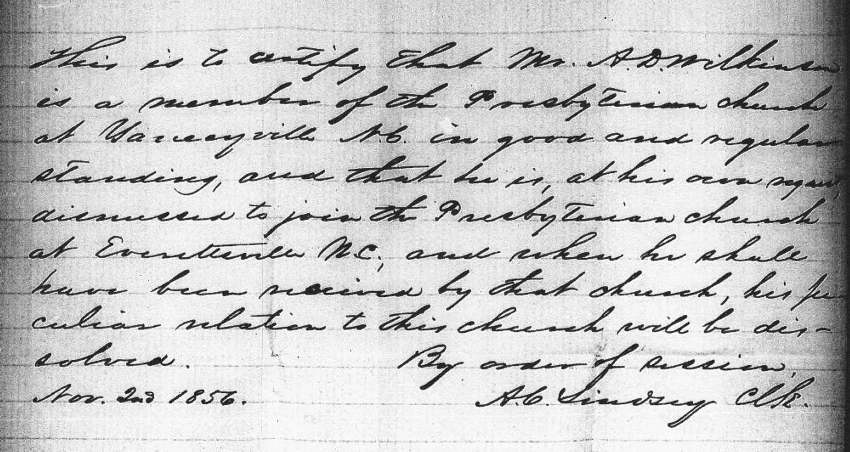 This is to certify that Mr. A. D. Wilkinson
is a member of the Presbyterian church
at Yanceyville N.C. in good and regular
standing, and that he is, at his own request,
dismissed to join the Presbyterian church
at Everettsville N.C., and when he shall
have been received by that church, his pe-
culiar relation to this church will be dis-
solved. By order of session,
Nov. 2nd 1856. A. C. Lindsey Clk.